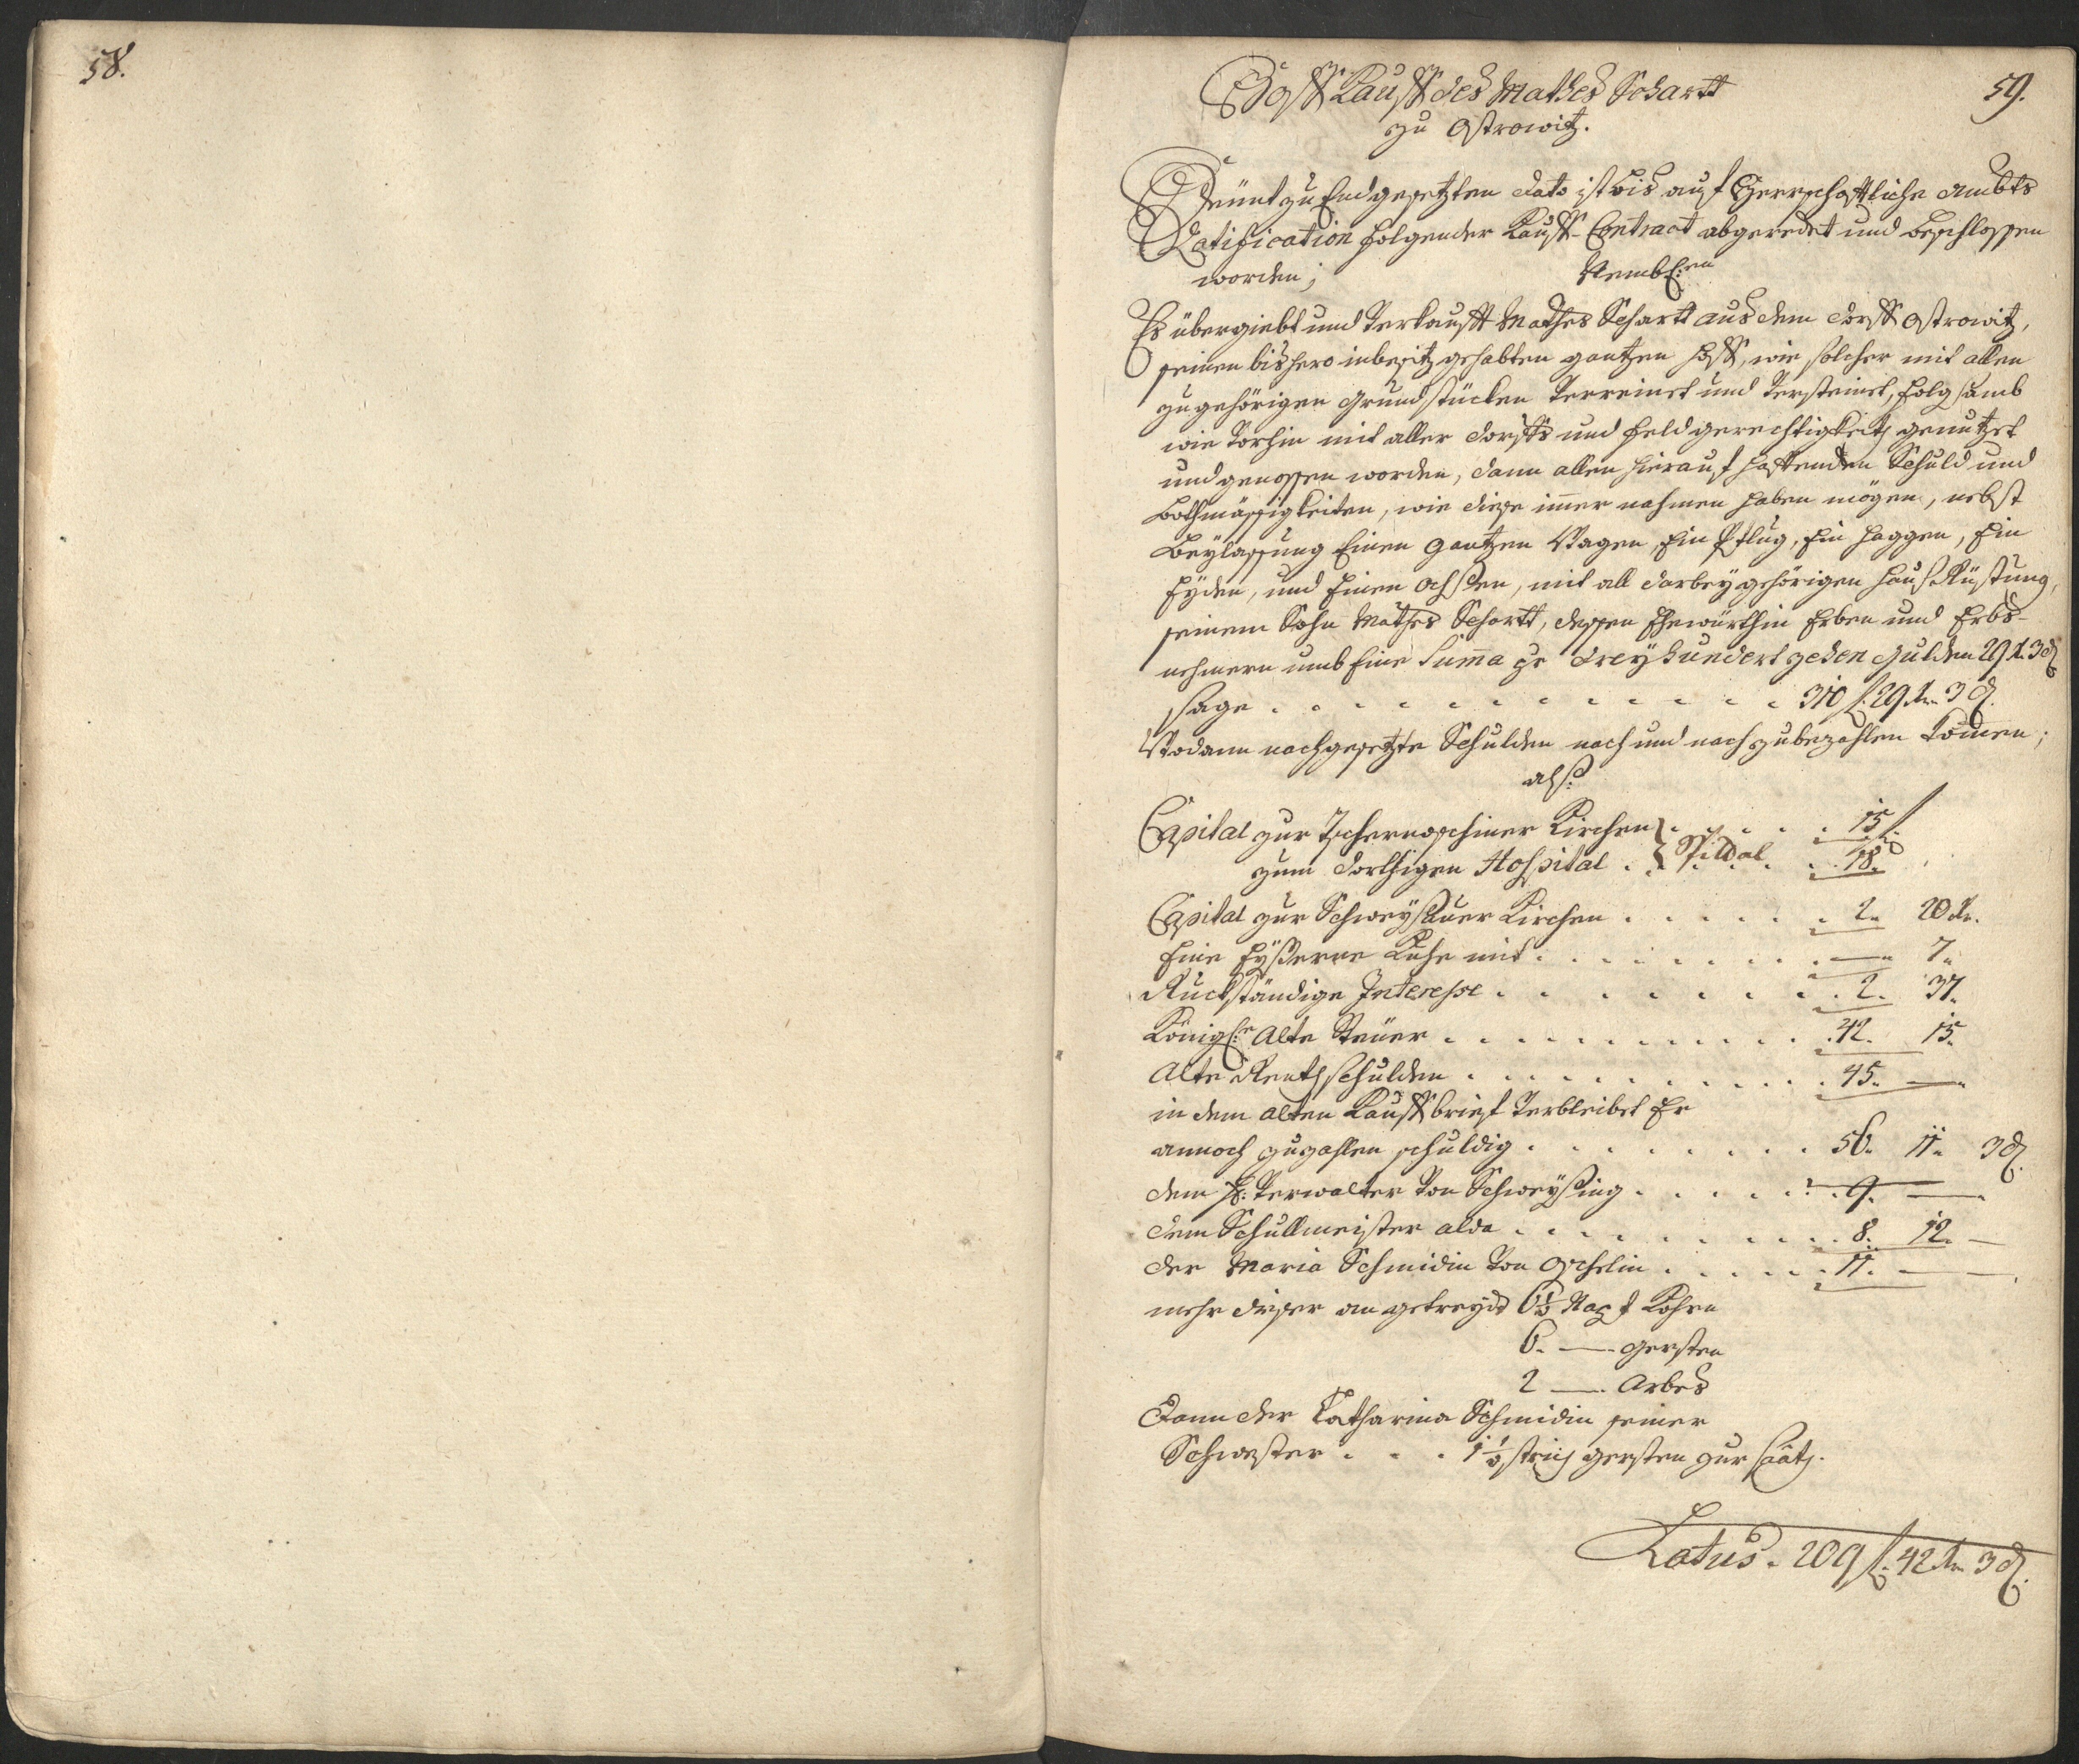 58.
59.
Hoff Kauff des Mathes Schartt
zu Ostrowitz.
Heünt zu End gesetzten dato ist bis auf Herrschafftliche Ambts
Ratification folgender Kauff-Contract abgeredet und beschlossen
worden; Nembl:en
Es übergiebt und Verkaufft Mathes Schartt aus dem dorff Ostrowitz,
seinen bishero in besitz gehabten gantzen Hoff, wie solcher mit allen
zugehörigen Grundstücken Verreinet und Versteinet, folgsamb
wie Vorhin mit aller dorffs und feld gerechtigkeith genutzet
und genossen worden, dann allen hierauf hafftenden Schuld und
Bothmässigkeiten, wie diese imer nahmen haben mögen, nebst
Beylassung Einen gantzen Wagen, Ein Pflug, Ein Haggen, Ein
Eyden, und Einen Ochsen, mit all darbey gehörigen Hauß Rüstung,
seinem Sohn Mathes Schartt, dessen Ehewürthin Erben und Erbs-
nehmern umb Eine Summa pr dreyhundert zehen Gulden 29 x. 3 d
sage . . . . . . . . . . . . 310 f. 29 Xr. 3 d.
Wodann nachgesetzte Schulden nach und nach zu bezahlen komen;
alß:
Capital zur Tschernoschiner Kirchen . . . . . 15 f.
zum dorthigen Hospital . . . . . 18.
Capital zur Schweyssauer Kirchen . . . . . . 2. 20 Xr.
Eine Eyßerne Kuhe mit . . . . . . . . — 7.
Ruckständige Interesse . . . . . . . . 2. 37.
Königl:e Alte Steüer . . . . . . . . . . . 42. 15.
Alte Renthschulden . . . . . . . . . . . 45. —
in dem Alten Kauffbrief Verbleibet Er
annoch zuzahlen schuldig . . . . . . . . 56. 11. 3 d.
dem H: Verwalter Von Schweyssing . . . . . . 9. —
dem Schullmeister alda . . . . . . . . . . 8. 12. —
der Maria Schmidin Von Oschelin . . . . . . 11. — —
mehr dieser an getreydt 6 1/2 Napf Kohrn
6. — Gersten
2 — Arbes
Dann der Catharina Schmidin seiner
Schwester . . . 1 1/2 strich gersten zur Saath.
Latus. 209 f. 42 Xr 3 d.